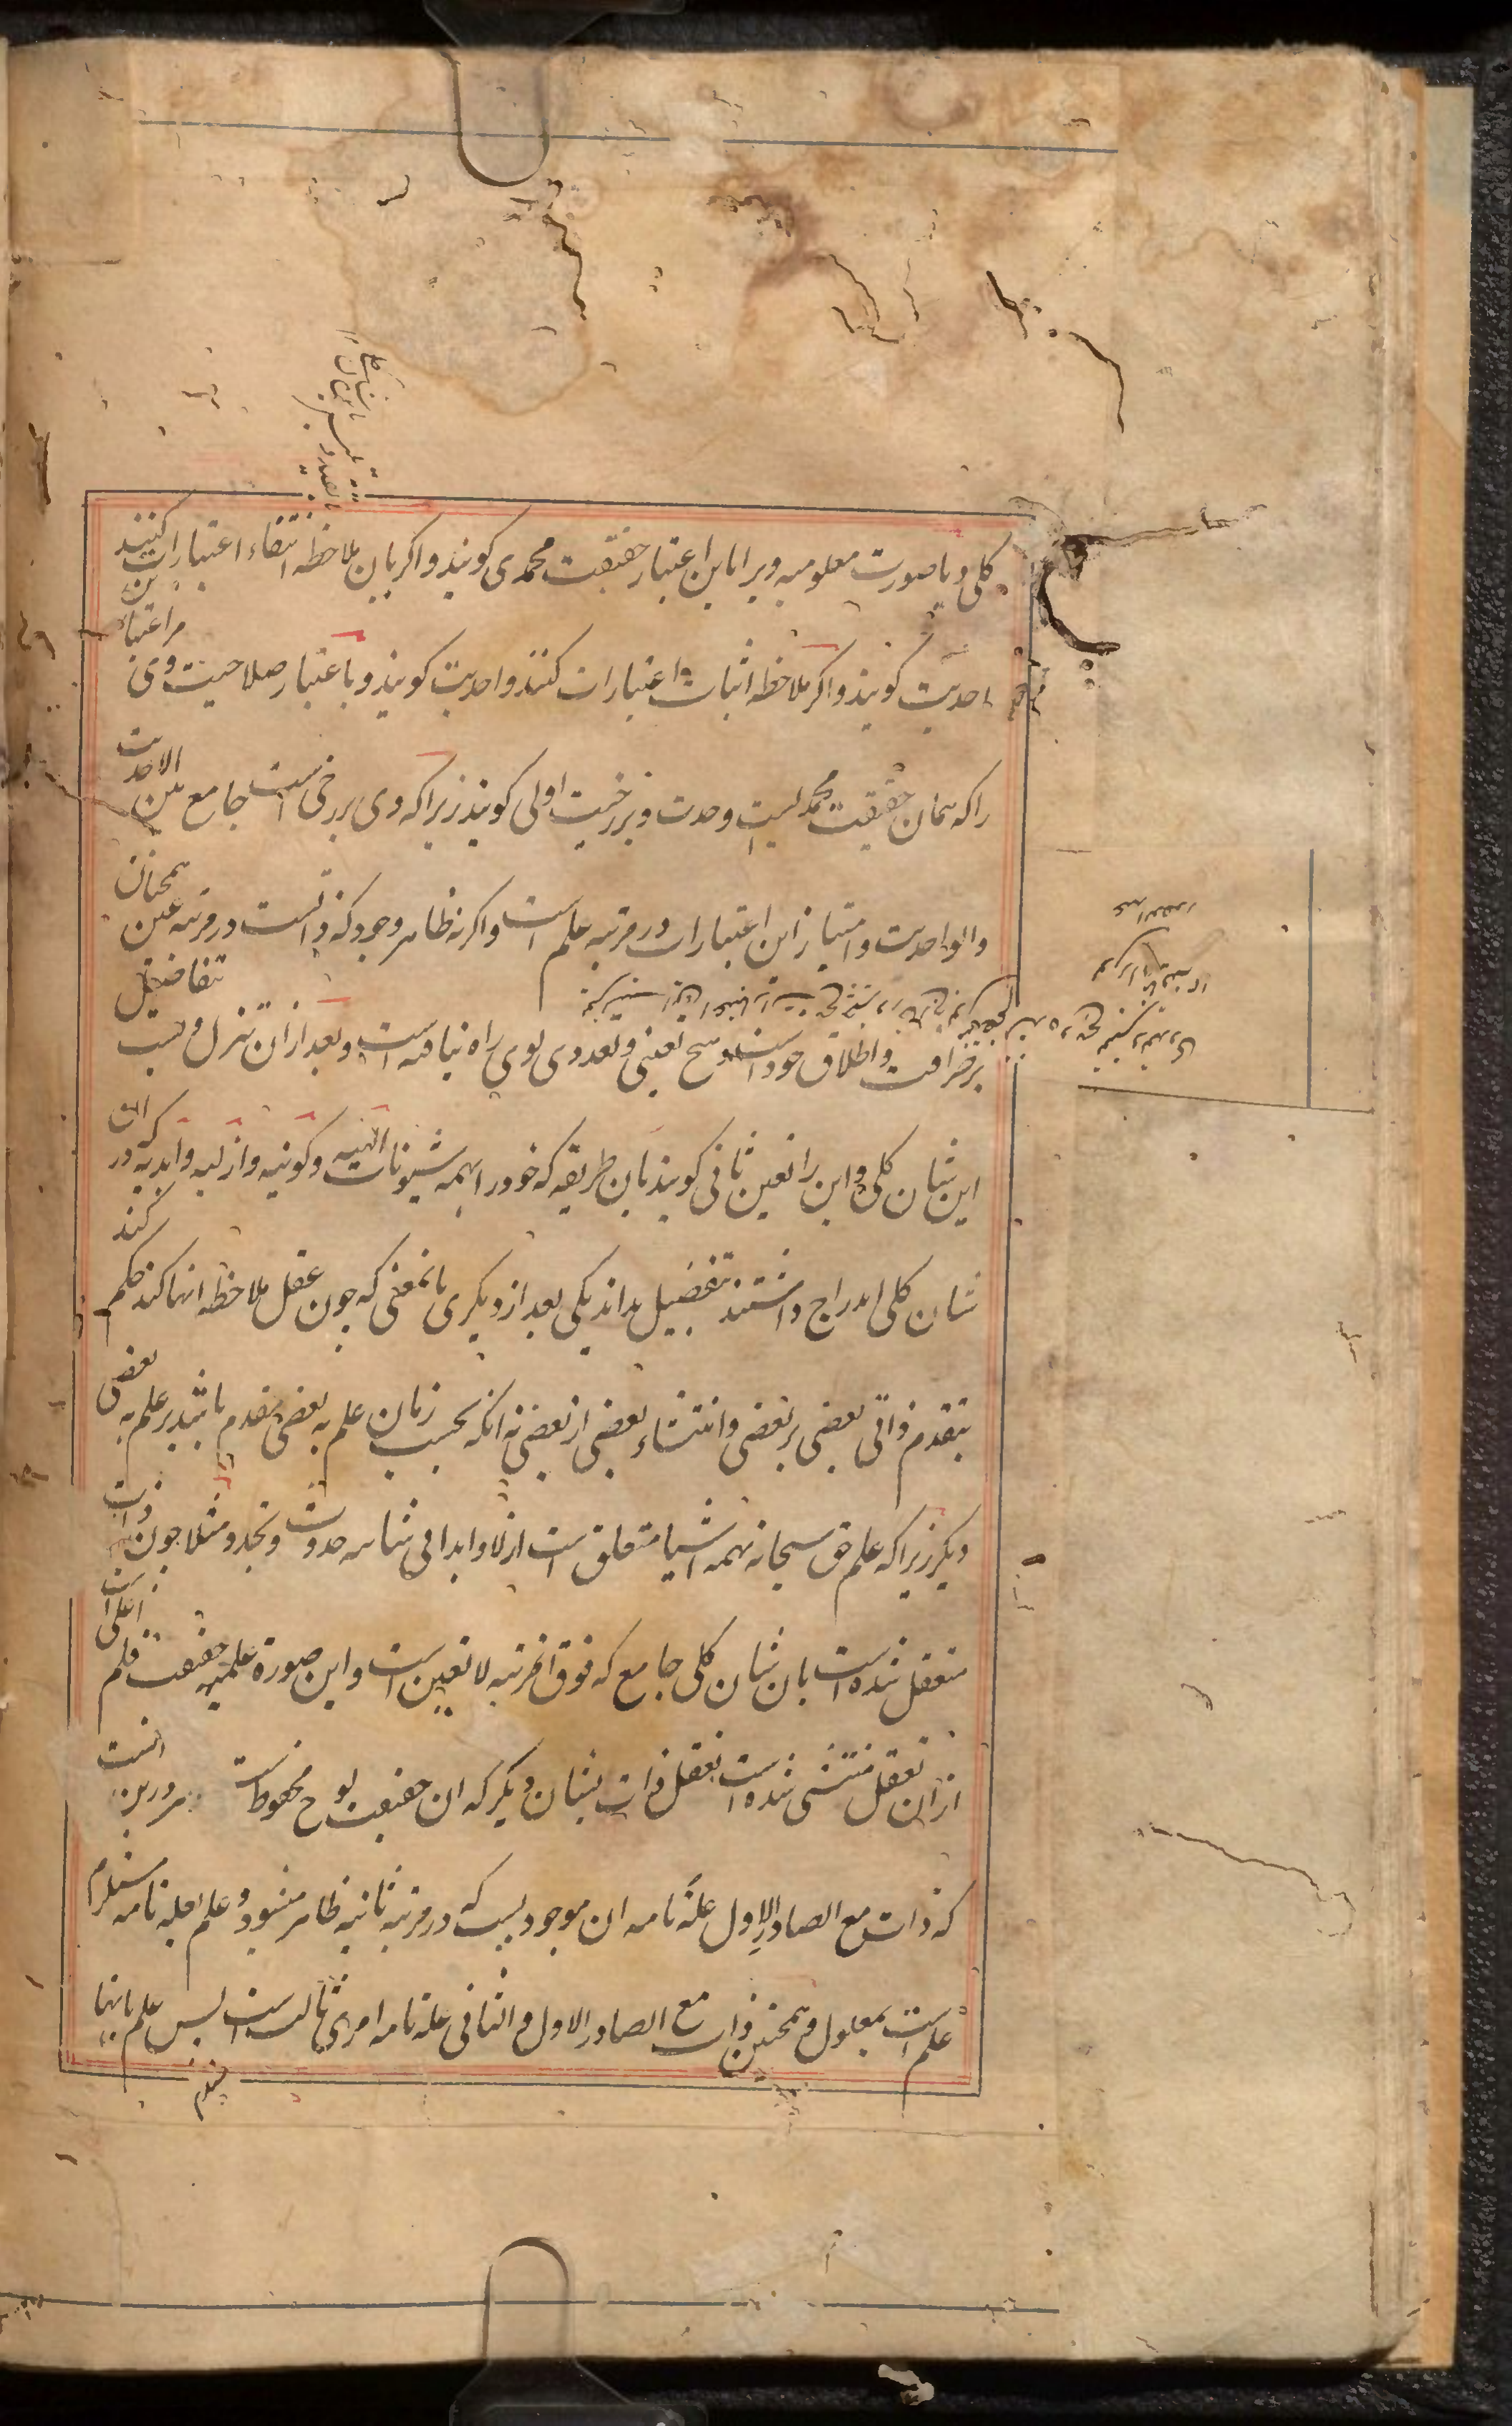 کلی و یا صورت معلومیه ویرا باین اعتبار حقیقت محمدی کویند و اکر بان ملاحظه انتفاء اعتبارات کنند
احدیت کویند و اکر ملاحظه اثبات اعتبارات کنند واحدیت کویند و باعتبار صلاحیت وی مر اعتبارین
را که همان حقیقت محمدیست وحدت و برزخیت اولی کویند زیرا که وی برزخی است جامع بین الاحدیت
والواحدیت و امتیاز این اعتبارات در مرتبه علم است و اکرنه ظاهر وجود که ذاتست در مرتبه عین همچنان
بر صرافت و اطلاق خود است و هیچ تعینی و تعددی بوی راه نیافته است و بعد ازان تنزل ویست تفاصیل
این شان کلی و این را تعین ثانی کویند بان طریقه که خود را بهمه شیونات الهیه و کونیه و ازلیه و ابدیه که در ان
شان کلی اندراج داشتند تفصیل بداند یکی بعد از دیکری بانمعنی که چون عقل ملاحظه انها کند حکم کند
بتقدم ذاتی بعضی بر بعضی و انتشاء بعضی از بعضی نه انکه بحسب زمان علم به بعضی مقدم باشد بر علم به بعضی
دیکر زیرا که علم حق سبحانه بهمه اشیا متعلق است ازلا و ابدا بی شائبه حدوث و تجدد مثلا چون ذات
متعقل شده است بان شان کلی جامع که فوق انمرتبه لا تعین است و این صورة علمیه حقیقت قلم اعلی است
ازان تعقل منتشی شده است تعقل ذات بشان دیکر که ان حقیقت لوح محفوظ است و سر درین انست
که ذات مع الصادر الاول علة تامه ان موجودیست که در مرتبه ثانیه ظاهر میشود و علم بعله تامه مستلزم
علم است بمعلول و همچنین ذات مع الصادر الاول و الثانی علة تامه امری ثالث است پس علم بانها